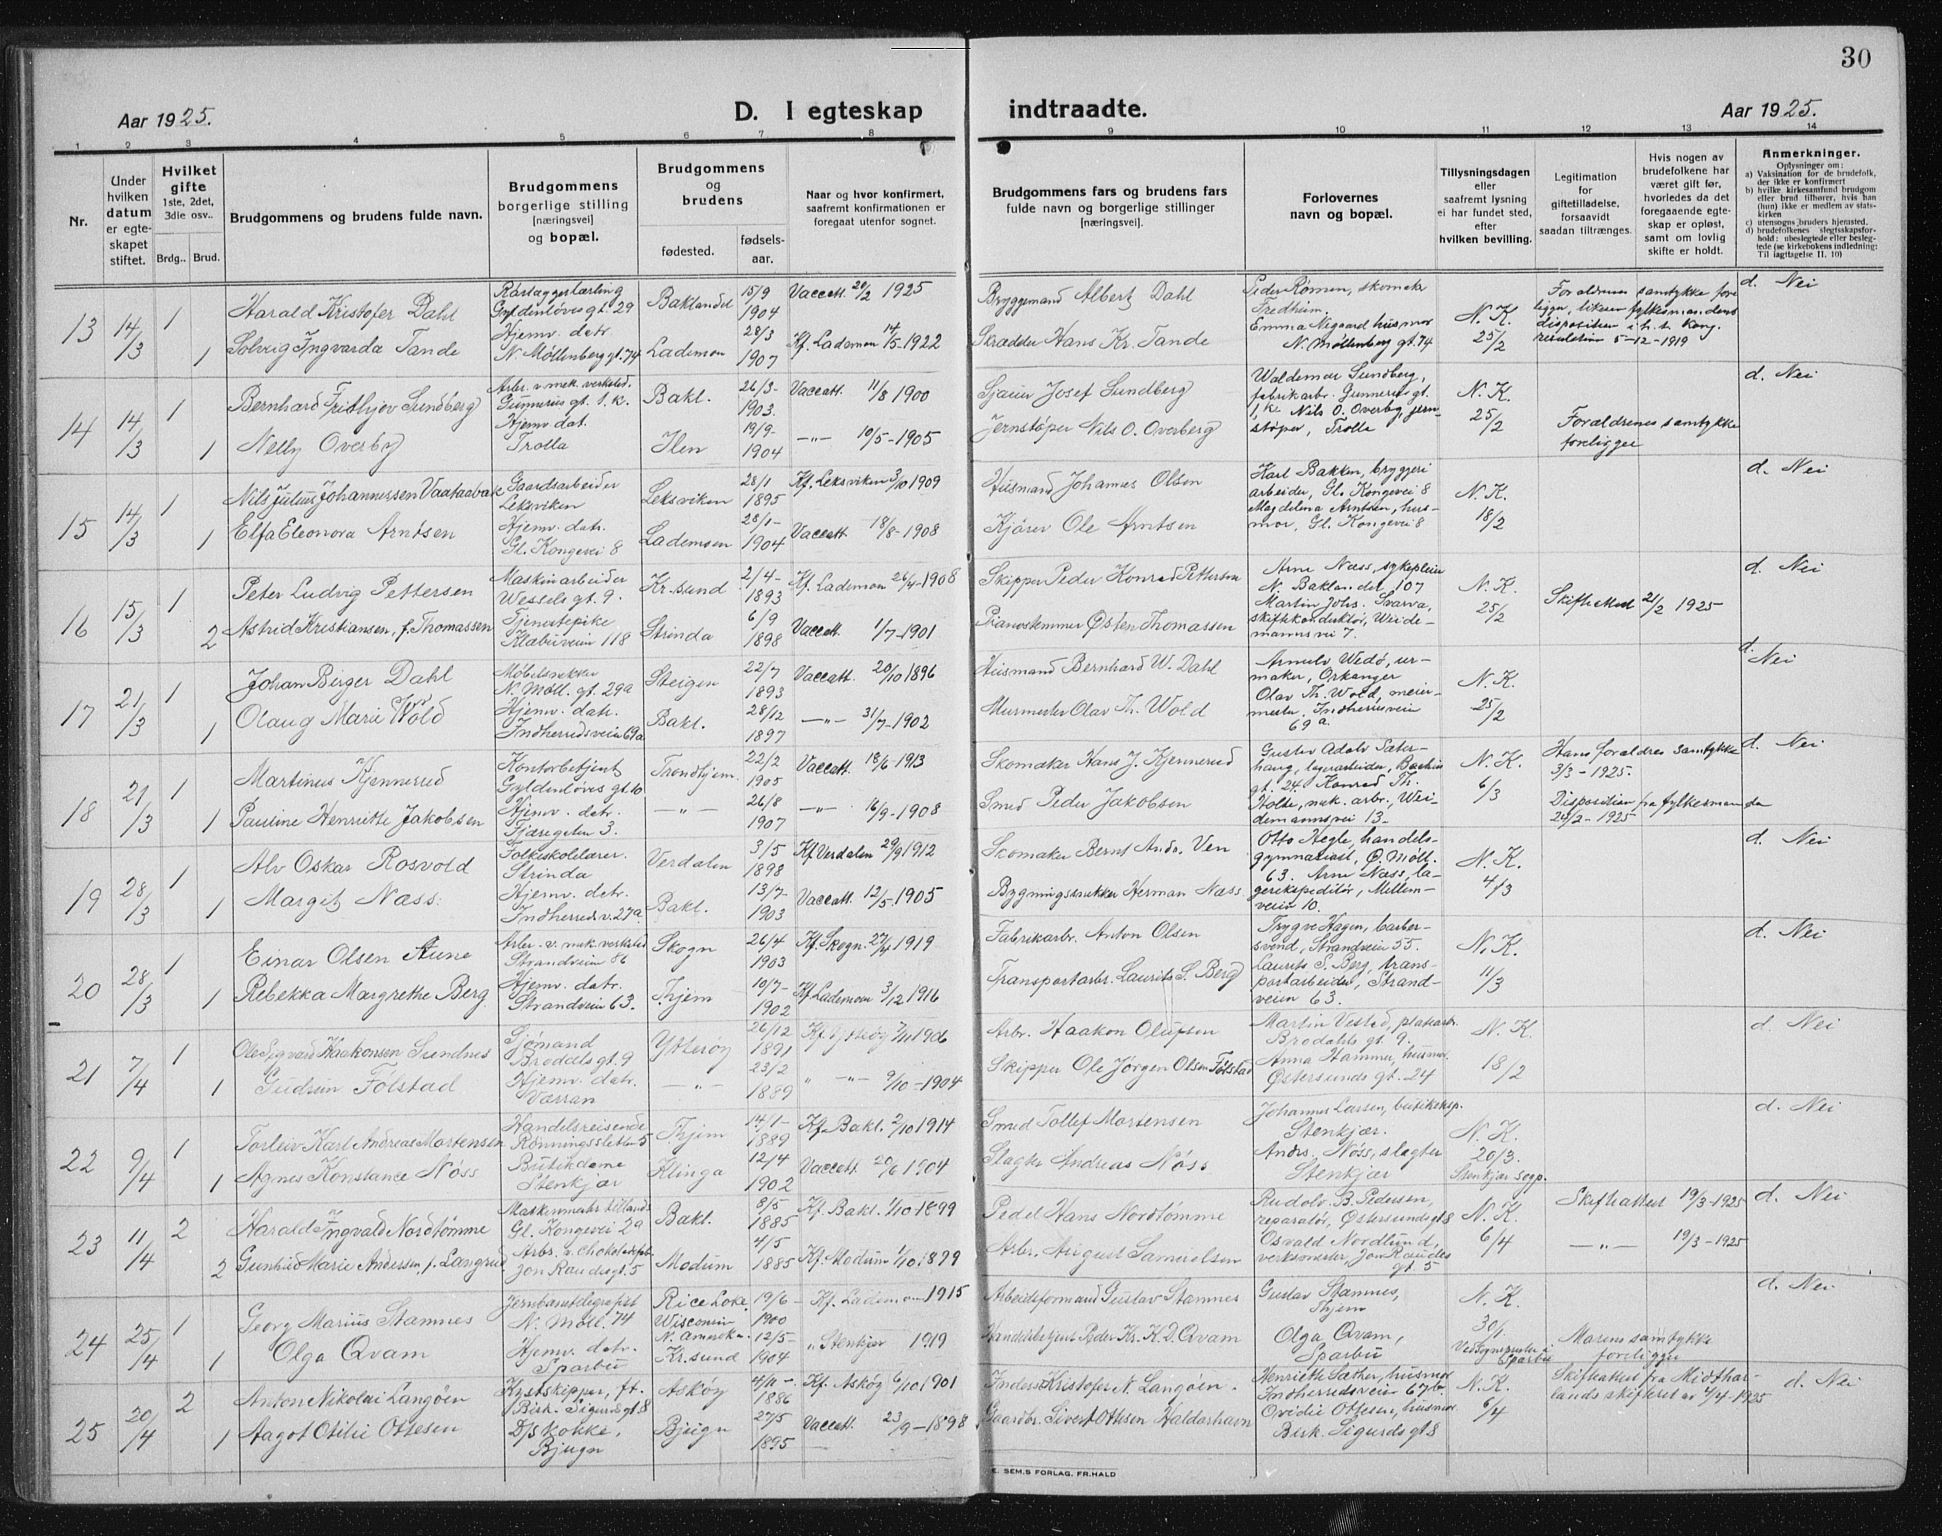 30
Aar 1925.
D. I egteskap
indtraadte.
Aar 1925.
1 2 3 4 5 6 7 8 9 10 11 12 13 14
Nr.
Under hvilken datum er egteskapet stiftet.
Hvilket gifte 1ste, 2det, 3die osv..
Brdg.. Brud.
Brudgommens og brudens fulde navn.
Brudgommens borgerlige stilling [næringsvei] og bopæl.
Brudgommens og brudens
fødested. fødsels-aar.
Naar og hvor konfirmert, saafremt konfirmationen er foregaat utenfor sognet.
Brudgommens fars og brudens fars fulde navn og borgerlige stillinger [næringsvei].
Forlovernes navn og bopæl.
Tillysningsdagen eller saafremt lysning ei har fundet sted, efter hvilken bevilling.
Legitimation for giftetilladelse, forsaavidt saadan tiltrænges.
Hvis nogen av brudefolkene har været gift før, hvorledes da det foregaaende egteskap er opløst, samt om lovlig skifte er holdt.
Anmerkninger.
Oplysninger om:
a) Vaksination for de brudefolk, der ikke er konfirmert
b) hvilke kirkesamfund brudgom eller brud tilhører, hvis han (hun) ikke er medlem av statskirken
c) utensogns bruders hjemsted.
d) brudefolkenes slegtsskapsforhold: ubeslegtede eller beslegtede (se kirkebokens indledning: Til iagttagelse II. 10)
13 14/3 1 Harald Kristofer Dahl Rørlæggerlærling Gyldenløves gt. 29 Baklandet 15/9 1904 Vaccatt. 20/2 1925 Bryggemand Albert Dahl Peder Rømen, skomaker Tredheim. N. K. 25/2 d. Nei
1 Solveig Ingvarda Tande Hjemv. datr. N. Møllenberg gt. 74 Lademoen 28/3 1907 Kf. Lademoen 14/5 1922 Skrædder Hans Kr. Tande Emma Nygaard husmor N. Møllenberg gt. 74
Forældrenes samtykke foreligger, likesaa fylkesmandens disposition i h. t. kong. resolution 5-12-1919
14 14/3 1 Bernhard Frithjov Sundberg Arbr. v. mek. verksted. Gunnerus gt. 1. k. Bakl. 26/3- 1903. Vaccatt. 11/8 1900 Sjauer Josef Sundberg Waldemar Sundberg, fabrikarbr. Gunnerus gt. 1. ke N. K. 25/2 Forældrenes samtykke foreligger d. Nei
1 Nelly Overby Hjemv. dat. Trolla Ilen 19/9- 1904 -"- 10/5-1905 Jernstøper Nils O. Overberg Nils O. Overby, jernstøper, Trolla
15 14/3 1 Nils Julius Johannessen Vaataabak Gaardsarbeider Leksviken Leksviken 28/1 1895 Kf. Leksviken 3/10 1909 Husmand Johannes Olsen Karl Bakken, bryggeriarbeider, Gl. Kongevei 8 N. K. 18/2 d. Nei
1 Elfa Eleonora Arntsen Hjemv. datr. Gl. Kongevei 8 Lademoen 28/1- 1904 Vaccatt. 18/8-1908 Kjører Ole Arntsen Magdalena Arntsen, husmor, Gl. Kongevei 8
16 15/3 1 Peter Ludvig Pettersen Maskinarbeider Wessels gt. 9. Kr. sund 2/4- 1893 Kf. Lademoen 26/4-1908 Skipper Peder Konrad Pettersen Arne Næss, sykepleier N. Baklandet 107 N. K. 25/2 Skifteattest 21/2 1925 d. Nei
2 Astrid Kristiansen, f. Thomassen Tjenestepike Klæbuveien 118 Strinda 6/9 1898 Vaccatt. 1/7-1901 Pianostemmer Østen Thomassen Martin Johs. Svarva, skifkonduktør, Weidemannsvei 7.
17 21/3 1 Johan Berger Dahl Møbelsnekker N. Møll. gt. 29a Steigen 22/7 1893 Vaccatt. 20/10 1896 Husmand Bernhard W. Dahl Arnulv Wedø, urmaker, Orkanger N. K. 25/2 d. Nei
1 Olaug Marie Wold Hjemv. datr. Indherredsveien 69a Bakl. 28/12 1897 -"- 31/7-1902 Murmester Olav Th. Wold Olav Th. Wold, meiermester, Indherredsveien 69a.
18 21/3 1 Martinus Kjennerud Kontorbetjent Gyldenløves gt. 10 Trondhjem. 22/2 1905 Vaccatt. 18/6-1913 Skomaker Hans J. Kjennerud Gustav Adolv Sæterhaug, lagerarbeider, Backes gt. 24. N. K. 6/3 Hans forældres samtykke 3/3-1925. d. Nei
1 Pauline Henriette Jakobsen Hjemv. datr. Fjæregaten 3. -"- 26/8 1907 -"- 16/9-1908 Smed Peder Jakobsen Konrad Th. Holte, mek. arbr., Weidemannsvei 13- Disposition fra fylkesmanden 24/2-1925
19 28/3 1 Alv Oskar Rosvold Folkeskolelærer. Strinda Verdalen 3/5 1898 Kf. Verdalen 29/9 1912 Skomaker Bernt Andr. Ven Otto Hegle, handelsgymnasiast, Ø. Møll. 63. N. K. 4/3 d. Nei
1 Margit Næss. Hjemv. datr. Indherredsv. 27a. Bakl. 13/7- 1903 Vaccatt. 12/5-1905 Bygningssnekker Herman Næss Arne Næss, lagerekspeditør, Mellemveien 10.
20 28/3 1 Einar Olsen Aune Arbr. v. mek. verksted Strandveien 86 Skogn 26/4 1903 Kf. Skogn. 27/4 1919 Fabrikarbr. Anton Olsen Trygve Hagen, barbersvend, Strandveien 55. N. K. 11/3 d. Nei
1 Rebekka Margrethe Berg. Hjemv. datr. Strandveien 63. Thjem 10/7- 1902 Kf. Lademoen 3/12 1916 Transportarbr. Laurits S. Berg Laurits S. Berg, transportarbeider, Strandveien 63.
21 7/4 1 Ole Sigvard Haakonsen Svendnes Sjømand Brodals gt. 9 Ytterøy 26/12 1891 Kf. Ytterøy 1906 Arbr. Haakon Olufsen Martin Vested, platearbr. Brodahls gt. 9. N. K. 18/2 d. Nei
1 Gudrun Følstad Hjemv. datr. Verran -"- 23/2 1889 " -"- 9/10-1904 Skipper Ole Jørgen Olsen Følstad Anna Hammer, husmor. Østersunds gt. 24
22 9/4 1 Torleiv Karl Andreas Mortensen Handelsreisende Rønningssletten 5 Thjem 14/1- 1889 Kf. Bakl. 2/10 1914 Smed Tollef Mortensen Johannes Larsen, butikeksp. Stenkjær. N. K. 20/3. Stenkjær sogn. d. Nei
1 Agnes Konstance Nøss Butikdame Stenkjær Klinga 12/4 1902 Vaccatt. 20/6 1904 Slagter Andreas Nøss Andrs. Nøss, slagter Stenkjær
23 11/4 2 Harald Ingvald Nordtømme Gl. Kongevei 29 Bakl. 8/5 1885 Kf. Bakl. 1/10 1899 Pedel Hans Nordtømme Rudolv B. Pedersen, reparatør, Østersunds gt 8 N. K. 6/4 Skifteattest 19/3-1925 d. Nei
2 Gunhild Marie Andersen, f. Langrud Arbr. v. chokoladefab. Jon Raudes gt. 5 Modum 4/5 1885 Kf. Modum 1/10 1899 Arbr. August Samuelsen Osvald Nordlund, verksmester, Jon Raudes gt. 5 -"- 19/3-1925
24 25/4 1 Georg Marius Stamnes Jernbanetelegrafist N. Møll. 74 Rice Lake, Wisconsin N. Amerika. 19/6- 1900 Kf. Lademoen 1915 Arbeidsformand Gustav Stamnes Gustav Stamnes, Thjem N. K. 30/1 d. Nei
1 Olga Qvam Hjemv. datr. Sparbu Kr. sund 12/5- 1904 " Stenkjær 1919 Handelsbetjent Peder Kr. K. D. Qvam Olga Qvam, Sparbu Ved sogneprest i Sparbu Morens samtykke foreligger
25 20/4 2 Anton Nikolai Langøen Kystskipper, ft. Birk. Sigurds gt. 8 Askøy 4/11- 1886 Kf. Askøy 6/10 1901 Inderst Kristofer N. Langøen. Henriette Sæther, husmor Indherredsveien 67b. N. K. 6/4 Skifteattest fra Midthordlands skifteret av 4/4-1925 d. Nei
1 Aagot Otilie Ottesen D/s kokke, Bjugn Bjugn 27/5 1895 Vaccatt. 23/9-1898 Gaardbr. Sivert Ottesen Haldorhavn Ovidie Ottesen, husmor Birk. Sigurds gt. 8
E. SEM.S FORLAG, FR.HALD